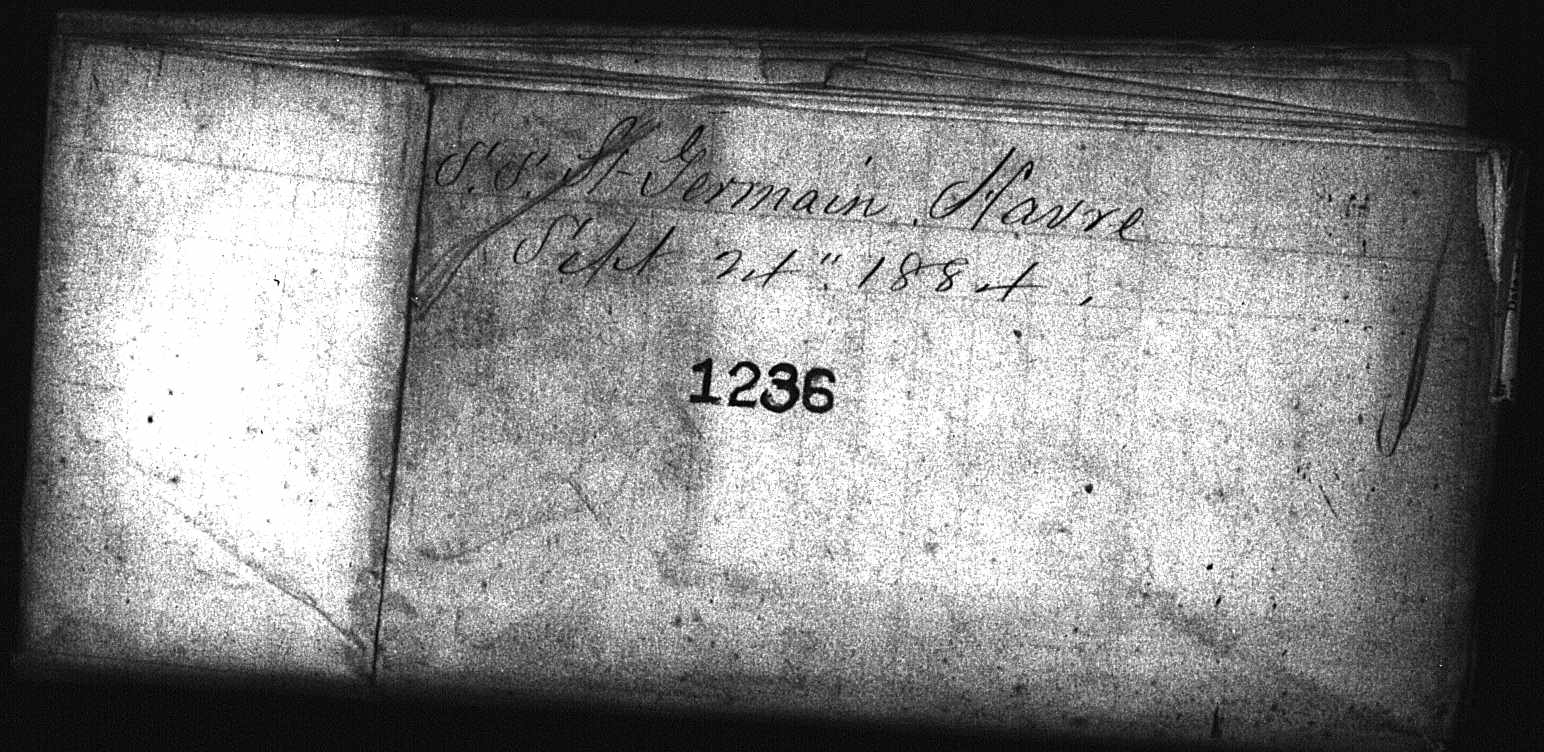 S.S. St Germain. Havre
Sept 24" 1884.
1236